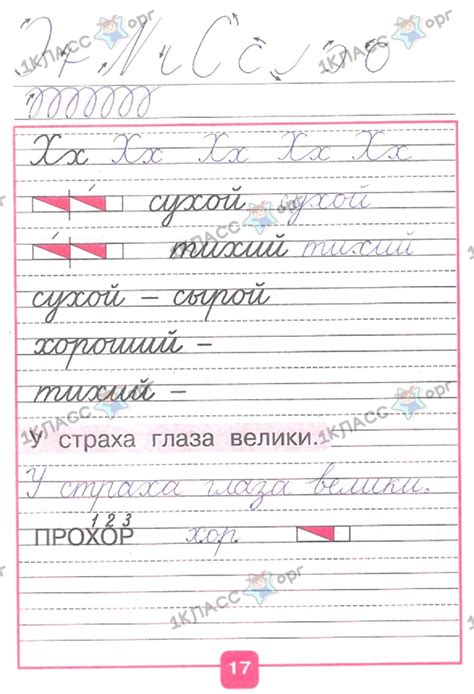 Хх Хх Хх Хх Хх
сухой сухой
тихий тихий
сухой – сырой
хороший –
тихий –
У страха глаза велики.
У страха глаза велики.
1 2 3
ПРОХОР хор
17
1КЛАСС орг